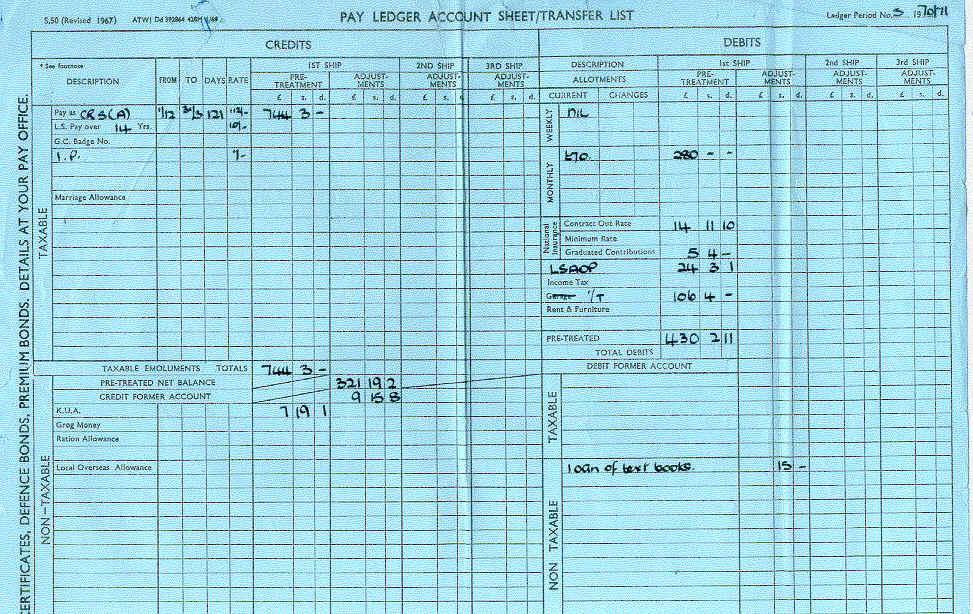 S.50 (Revised 1967) ATWI Dd 392864 428M /69
PAY LEDGER ACCOUNT SHEET/TRANSFER LIST
Ledger Period No. 3 1970/71
CERTIFICATES, DEFENCE BONDS, PREMIUM BONDS. DETAILS AT YOUR PAY OFFICE.
CREDITS
* See footnote
DESCRIPTION FROM TO DAYS RATE
1ST SHIP 2ND SHIP 3RD SHIP
PRE-TREATMENT ADJUST-MENTS ADJUST-MENTS ADJUST-MENTS
£ s. d. £ s. d. £ s. d. £ s. d.
TAXABLE
Pay as CRS(A) 1/12 31/3 121 112/- 744 3 -
L.S. Pay over 14 Yrs. 10/-
G.C. Badge No.
I.P. 1/-
Marriage Allowance
TAXABLE EMOLUMENTS TOTALS 744 3 -
PRE-TREATED NET BALANCE 321 19 2
CREDIT FORMER ACCOUNT 9 15 8
NON-TAXABLE
K.U.A. 7 19 1
Grog Money
Ration Allowance
Local Overseas Allowance
DEBITS
DESCRIPTION 1st SHIP 2nd SHIP 3rd SHIP
ALLOTMENTS PRE-TREATMENT ADJUST-MENTS ADJUST-MENTS ADJUST-MENTS
CURRENT CHANGES £ s. d. £ s. d. £ s. d. £ s. d.
WEEKLY NIL
MONTHLY £70. 280 - -
National Insurance
Contract Out Rate 14 11 10
Minimum Rate
Graduated Contributions 5 4 -
LSAOP 24 3 1
Income Tax
Garage I/T 106 4 -
Rent & Furniture
PRE-TREATED 430 2 11
TOTAL DEBITS
DEBIT FORMER ACCOUNT
TAXABLE
NON TAXABLE
Loan of text books. 15 -